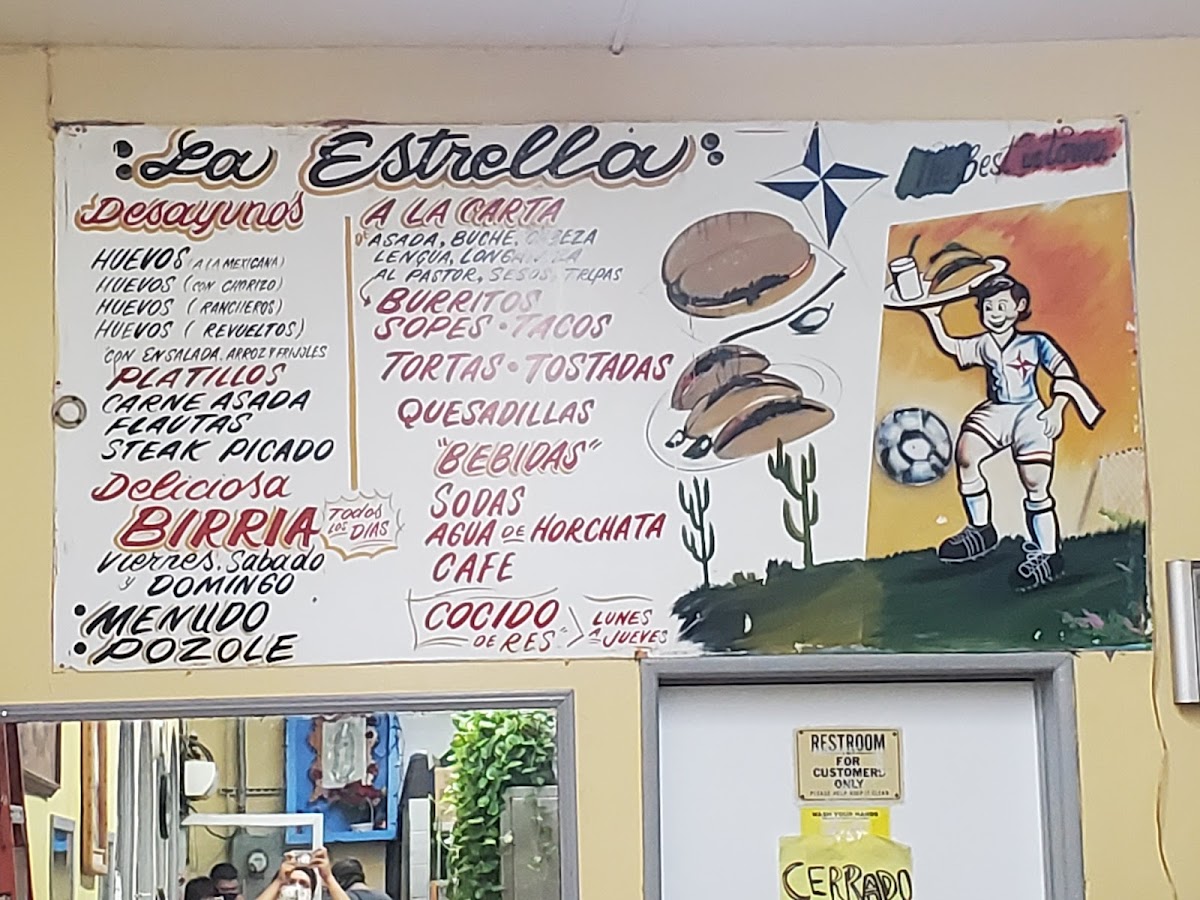 La Estrella
The Best in Town.
Desayunos
HUEVOS (A LA MEXICANA)
HUEVOS (CON CHORIZO)
HUEVOS (RANCHEROS)
HUEVOS (REVUELTOS)
CON ENSALADA, ARROZ Y FRIJOLES
PLATILLOS
CARNE ASADA
FLAUTAS
STEAK PICADO
Deliciosa
BIRRIA
Todos
LOS DIAS
Viernes, Sabado
y DOMINGO
• MENUDO
• POZOLE
A LA CARTA
DE ASADA, BUCHE, CABEZA
LENGUA, LONGANIZA
AL PASTOR, SESOS, TRIPAS
BURRITOS
SOPES • TACOS
TORTAS • TOSTADAS
QUESADILLAS
"BEBIDAS"
SODAS
AGUA DE HORCHATA
CAFE
COCIDO
DE RES"
LUNES
A JUEVES
RESTROOM
FOR
CUSTOMERS
ONLY
PLEASE HELP KEEP IT CLEAN
WASH YOUR HANDS
CERRADO